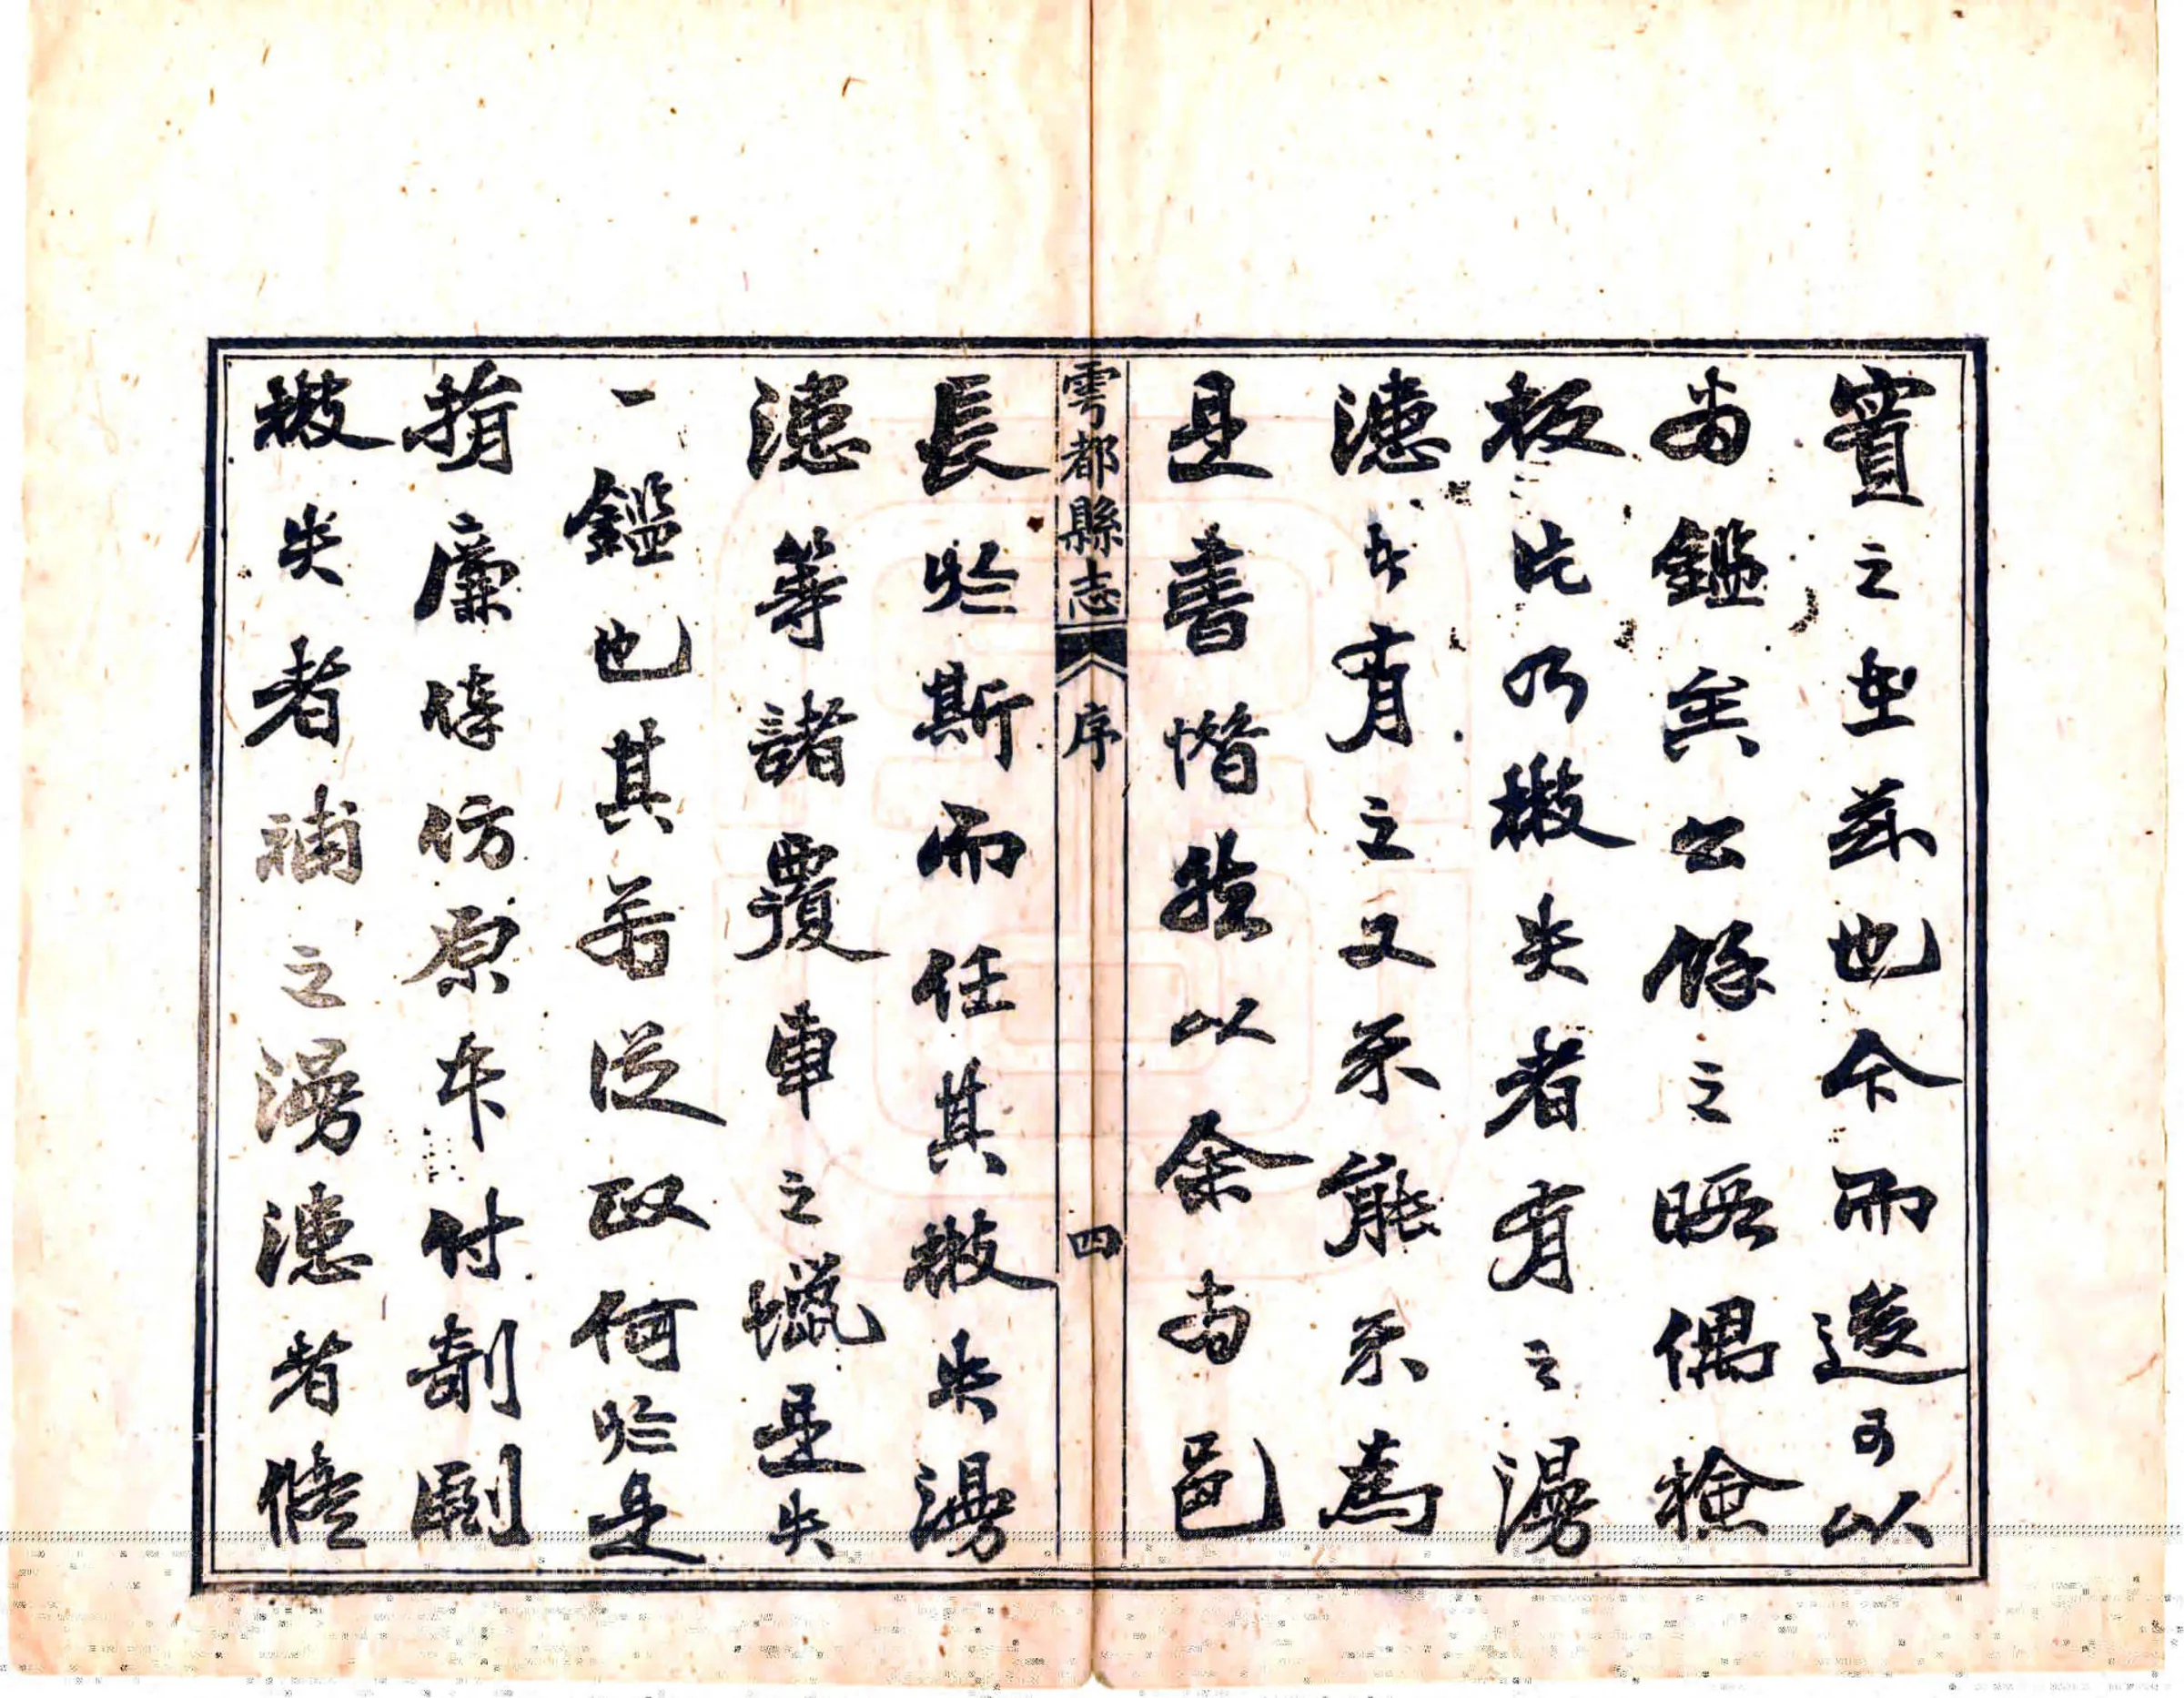 實之型益也今而後可以
為鑑矣公餘之暇偶檢
板片乃散失者有之漫
漶者有之又不能不為
是書惜然以余為邑
雩都縣志 序 四
長於斯而任其散失漫
漶等諸覆車之蠟是失
一鑑也其若從政何於是
捐廉倩仿原本付剞劂
散失者補之漫漶者修